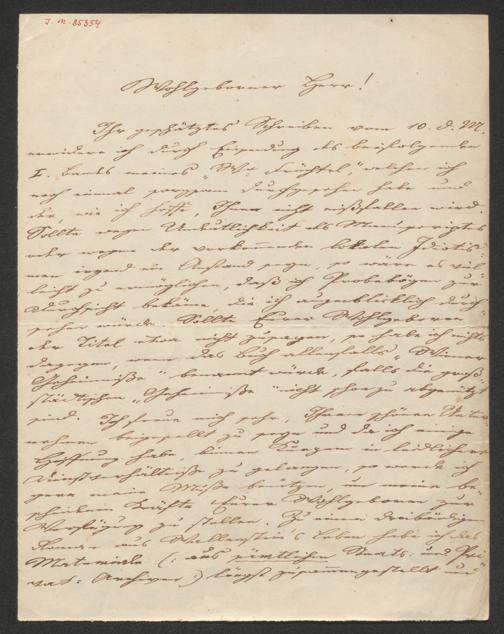 J. N. 85354
Wohlgeborner Herr!
Ihr geschätztes Schreiben vom 10. d. M.
erwidere ich durch Einsendung des beifolgenden
I. Bandes meines " welchen ich
noch einmal sorgsam durchgesehen habe und
der, wie ich hoffe, Ihnen nicht mißfallen wird.
Sollte wegen Undeutlichkeit des Manuscriptes
oder wegen der vorkommenden lokalen Idiotis-
men irgend ein Anstand seyn, so wäre es viel-
leicht zu ermöglichen, daß ich Probebögen zur
Durchsicht bekäme, die ich augenblicklich durch-
sehen würde. Sollte Euer Wohlgeboren
der Titel etwa nicht zusagen, so habe ich nichts
dagegen, wenn das Buch allenfalls "Wiener
Geheimnisse" benannt würde, falls die groß-
städtischen "Geheimnisse" nicht schon zu abgenützt
sind. Ich freue mich sehr, Ihrem schönen Unter-
nehmen beigesellt zu seyn und da ich einige
Hoffnung habe binnen Kurzem in leidlichere
Dienstverhältnisse zu gelangen, so werde ich
gern meine Muße benützen, um meine be-
scheidenen Kräfte Euer Wohlgeboren zur
Verfügung zu stellen. Zu einem dreibändigen
Roman aus Wallenstein's Leben habe ich das
Materiale (: aus sämtlichen Staats- und Pri-
vat-Archiven :) längst zusammengestellt und